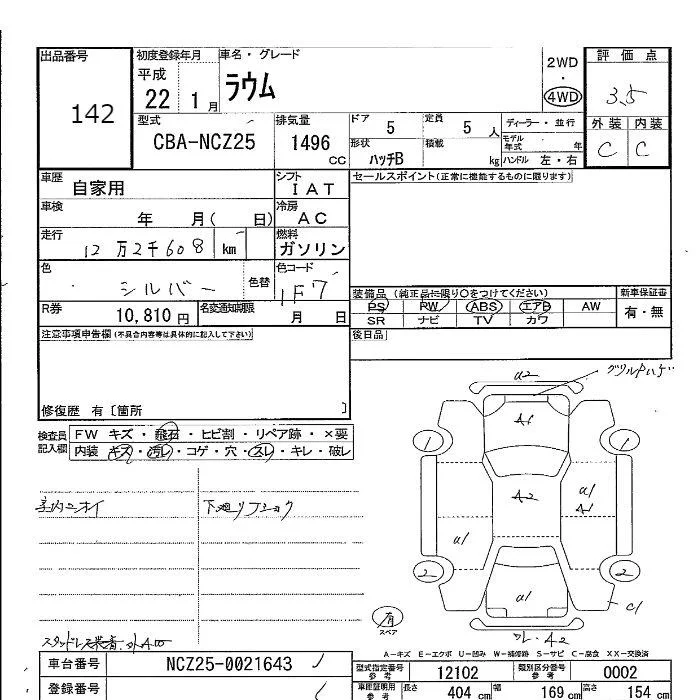 出品番号 142
初度登録年月 平成 22 1月
車名・グレード ラウム
2WD・4WD
評価点 3.5
外装 内装
C C
型式 CBA-NCZ25
排気量 1496 CC
ドア 5
定員 5 人
ディーラー・並行
形状 ハッチB
積載 kg
モデル年式 年
ハンドル 左・右
車歴 自家用
シフト IAT
セールスポイント(正常に機能するものに限ります)
車検 年 月( 日)
冷房 AC
走行 12万2千608 km
燃料 ガソリン
色 シルバー 色替
色コード 1F7
装備品 (純正品に限り○をつけてください)
新車保証書
PS PW ABS エアB AW
有・無
SR ナビ TV カワ
R券 10,810 円
名変通知期限 月 日
後日品
注意事項申告欄(不具合内容等は具体的に記入して下さい)
修復歴 有〔箇所 〕
検査員記入欄
FW キズ・飛石・ヒビ割・リペア跡・×要
内装 キズ・汚レ・コゲ・穴・スレ・キレ・破レ
室内ニオイ
下廻リフショク
A2
A1
1 1
A2
A1
A1
A1
2 2
A1
C1
A2
有
スペア
A-キズ E-エクボ U-凹み W-補修跡 S-サビ C-腐食 XX-交換済
車台番号 NCZ25-0021643
型式指定番号 参考 12102
類別区分番号 参考 0002
登録番号
車庫証明用 参考 長さ 404 cm 幅 169 cm 高さ 154 cm